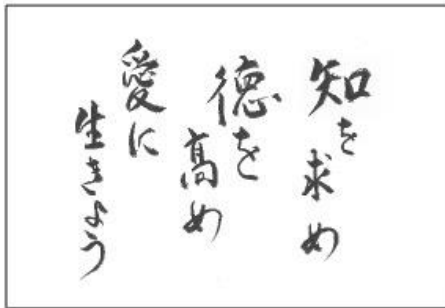 知を求め
徳を
高め
愛に
生きよう